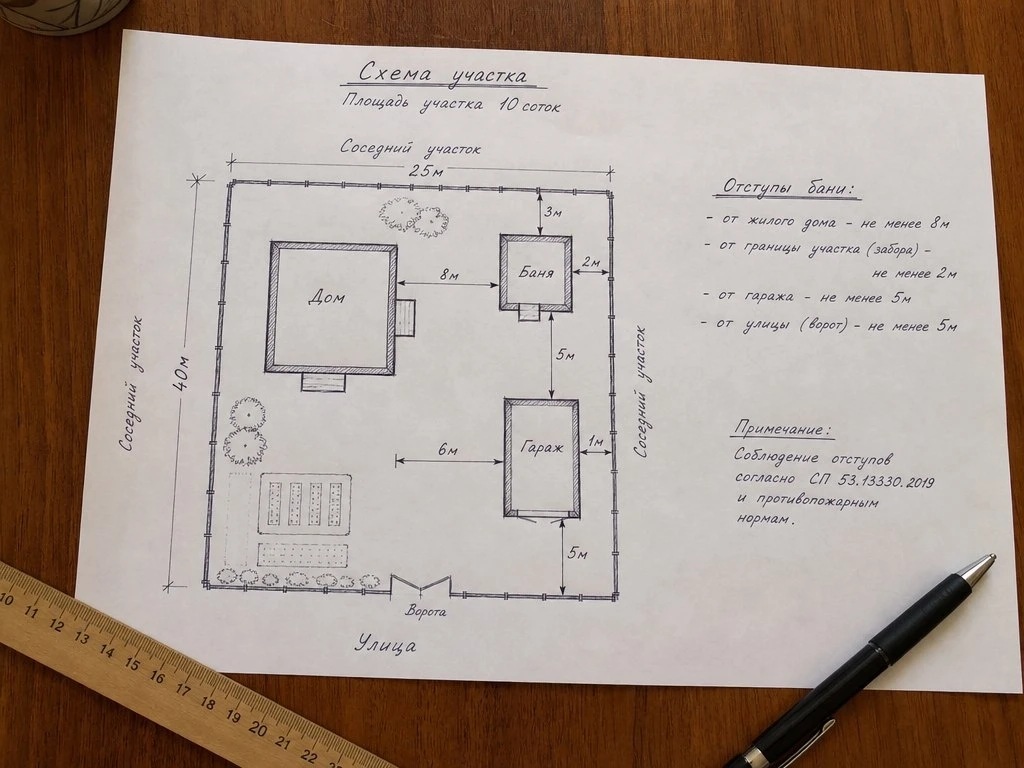 Схема участка
Площадь участка 10 соток
Соседний участок
25м
3м
Баня
2м
8м
Дом
5м
40м
Соседний участок
Соседний участок
Гараж
1м
6м
5м
Ворота
Улица
Отступы бани:
- от жилого дома - не менее 8м
- от границы участка (забора) -
не менее 2м
- от гаража - не менее 5м
- от улицы (ворот) - не менее 5м
Примечание:
Соблюдение отступов
согласно СП 53.13330.2019
и противопожарным
нормам.
10 11 12 13 14 15 16 17 18 19 20 21 22